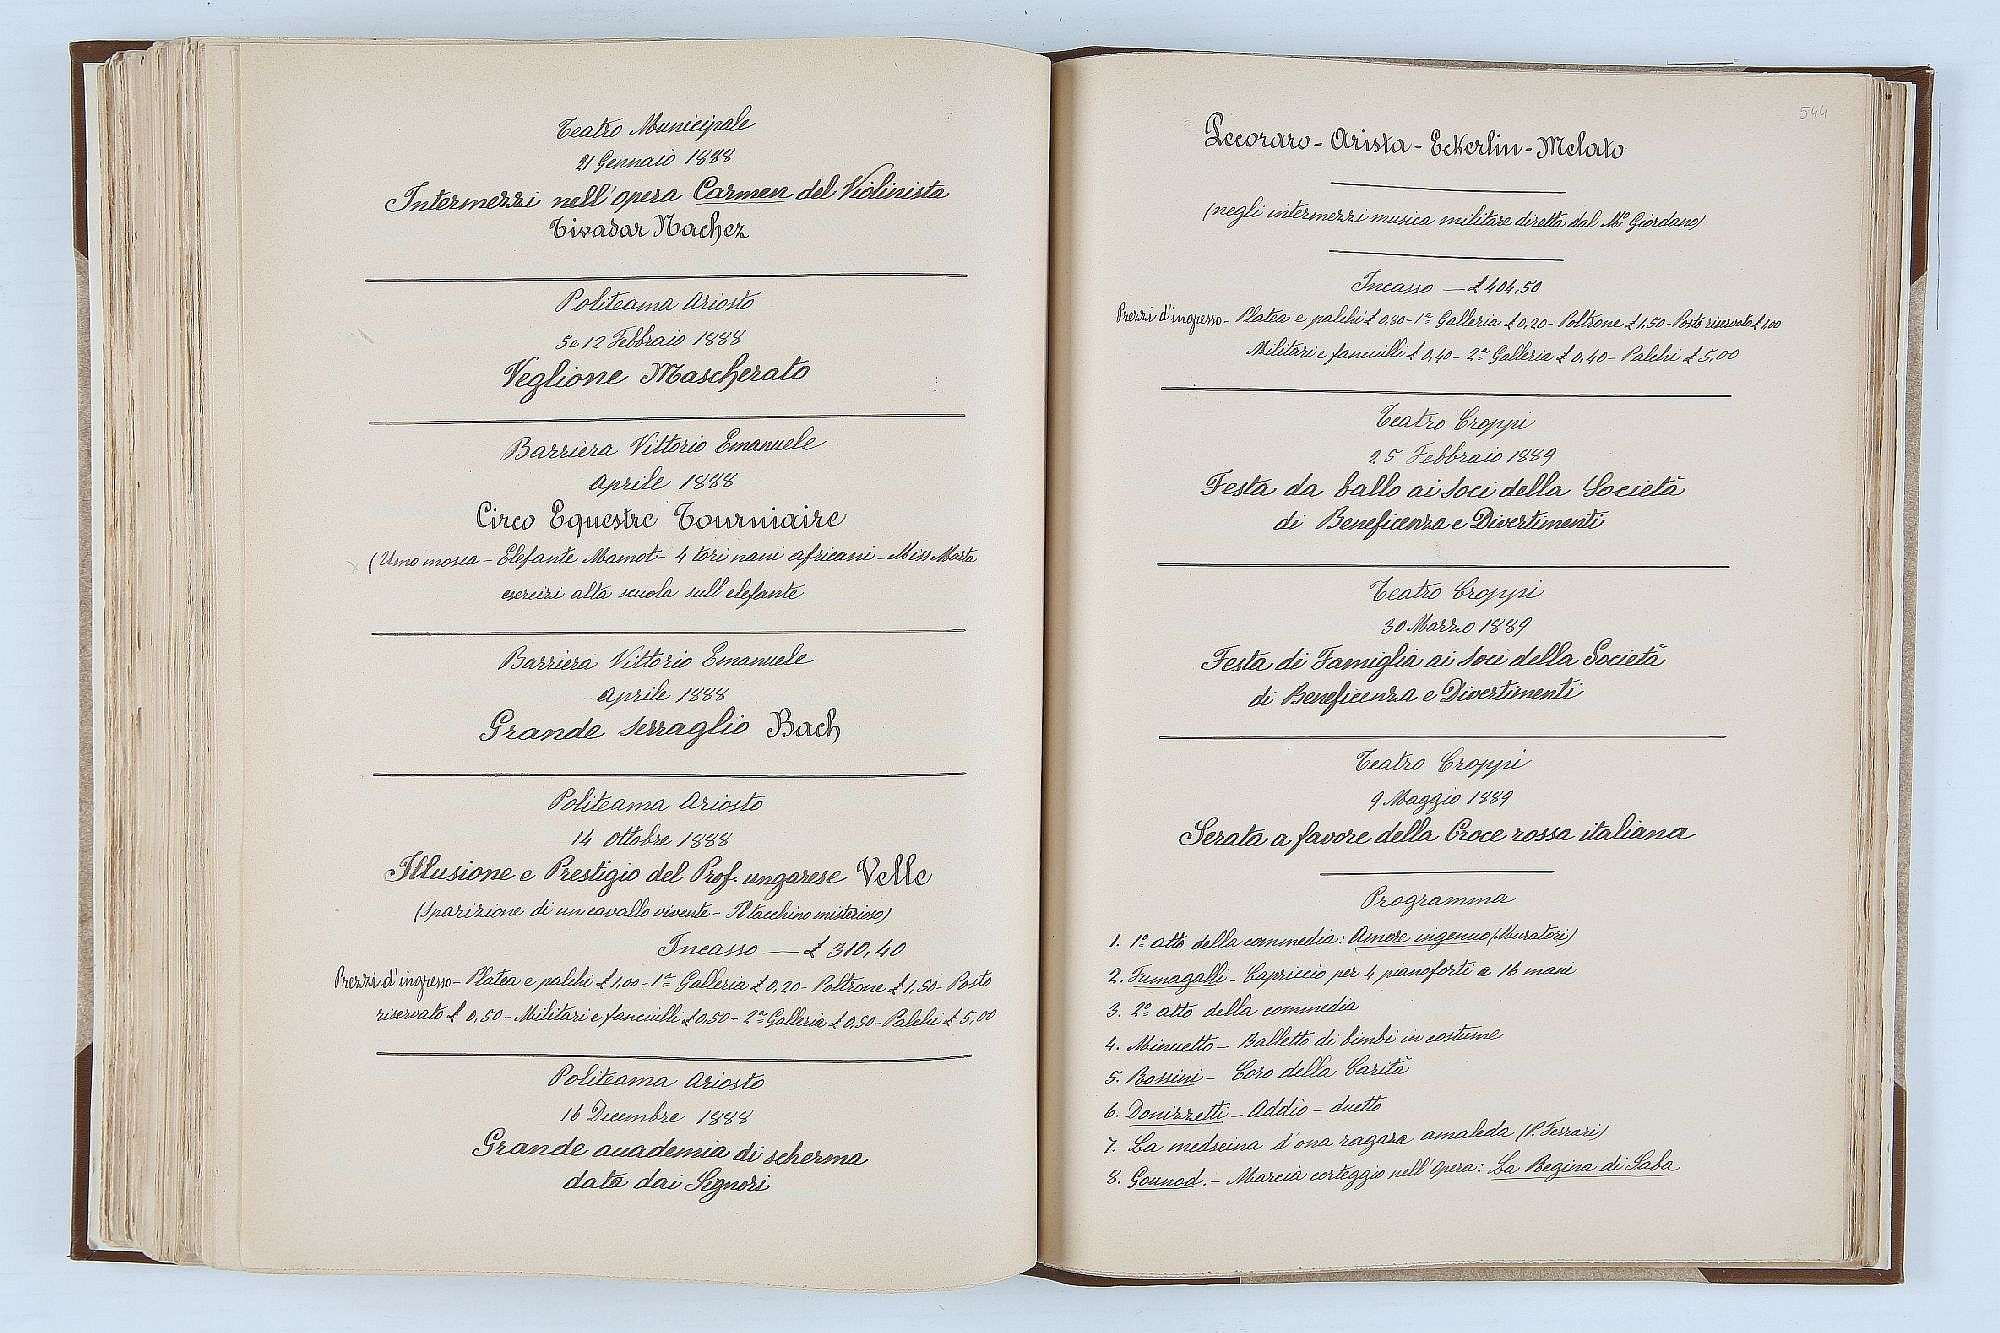 Teatro Municipale
21 Gennaio 1888
Intermezzi nell'opera Carmen del Violinista
Tivadar Nachez
Politeama Ariosto
5 e 12 Febbraio 1888
Veglione Mascherato
Barriera Vittorio Emanuele
Aprile 1888
Circo Equestre Tourniaire
(Uomo mosca - Elefante Mamot - 4 tori nani africani - Miss Marta
esercizi alta scuola sull'elefante
Barriera Vittorio Emanuele
Aprile 1888
Grande serraglio Bach
Politeama Ariosto
14 Ottobre 1888
Illusione e Prestigio del Prof. ungarese Velle
(Sparizione di un cavallo vivente - Il tacchino misterioso)
Incasso — £ 310,40
Prezzi d'ingresso - Platea e palchi £ 1,00 - 1ª Galleria £ 0,20 - Poltrone £ 1,50 - Posto
riservato £ 0,50 - Militari e fanciulli £ 0,50 - 2ª Galleria £ 0,50 - Palchi £ 5,00
Politeama Ariosto
16 Decembre 1888
Grande accademia di scherma
data dai Signori
544
Pecoraro - Arista - Eckerlin - Melato
(negli intermezzi musica militare diretta dal Mº Giordano)
Incasso — £ 404,50
Prezzi d'ingresso - Platea e palchi £ 0,80 - 1ª Galleria £ 0,20 - Poltrone £ 1,50 - Posto riservato £ 1,00
Militari e fanciulli £ 0,40 - 2ª Galleria £ 0,40 - Palchi £ 5,00
Teatro Croppi
25 Febbraio 1889
Festa da ballo ai soci della Società
di Beneficenza e Divertimenti
Teatro Croppi
30 Marzo 1889
Festa di Famiglia ai soci della Società
di Beneficenza e Divertimenti
Teatro Croppi
9 Maggio 1889
Serata a favore della Croce rossa italiana
Programma
1. 1º atto della commedia: Amore ingenuo (Muratori)
2. Fumagalli - Capriccio per 4 pianoforti a 16 mani
3. 2º atto della commedia
4. Minuetto - Balletto di bimbi in costume
5. Rossini - Coro della Carità
6. Donizzetti - Addio - duetto
7. La medseina d'ona ragaza amaleda (P. Ferrari)
8. Gounod. - Marcia corteggio nell'Opera: La Regina di Saba